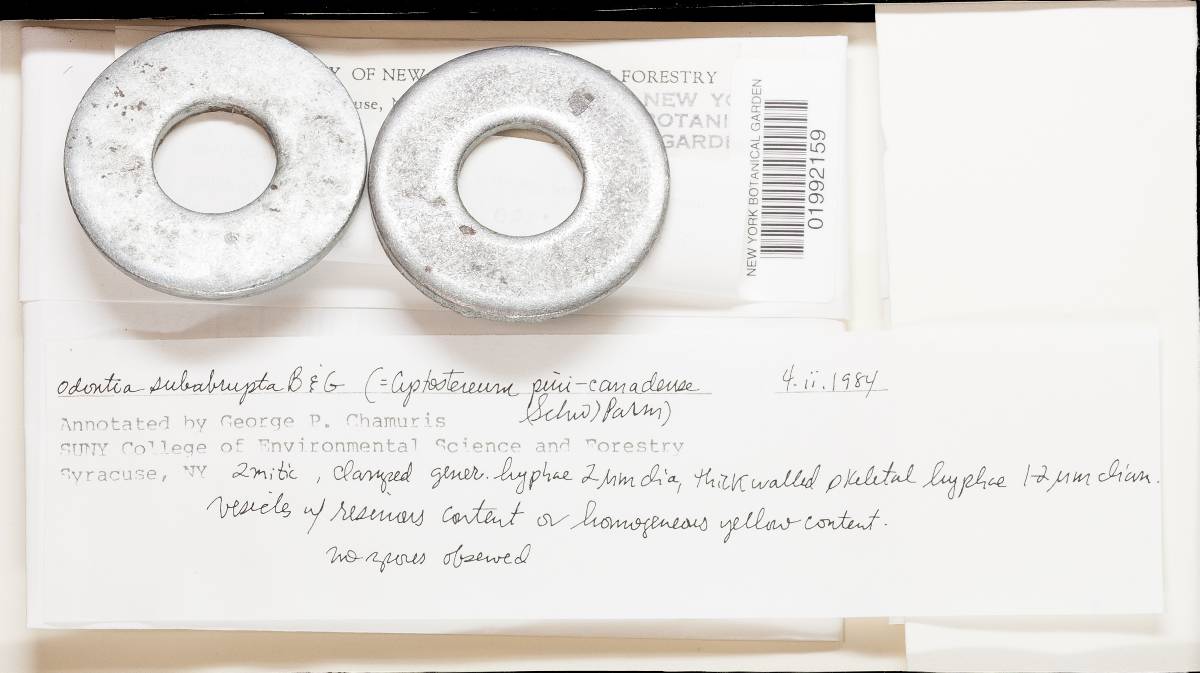 OF NEW FORESTRY
use,
NEW Y
BOTANI
GARDE
NEW YORK BOTANICAL GARDEN
01992159
Odontia subabrupta B & G (= Cyptostereum pini-canadense 4.ii.1984
(Schw) Parm)
Annotated by George P. Chamuris
SUNY College of Environmental Science and Forestry
Syracuse, NY 2mitic, clamped gener. hyphae 2 µm dia, thick walled skeletal hyphae 1-2 µm diam.
vesicles w/ resinous content or homogeneous yellow content.
no spores observed